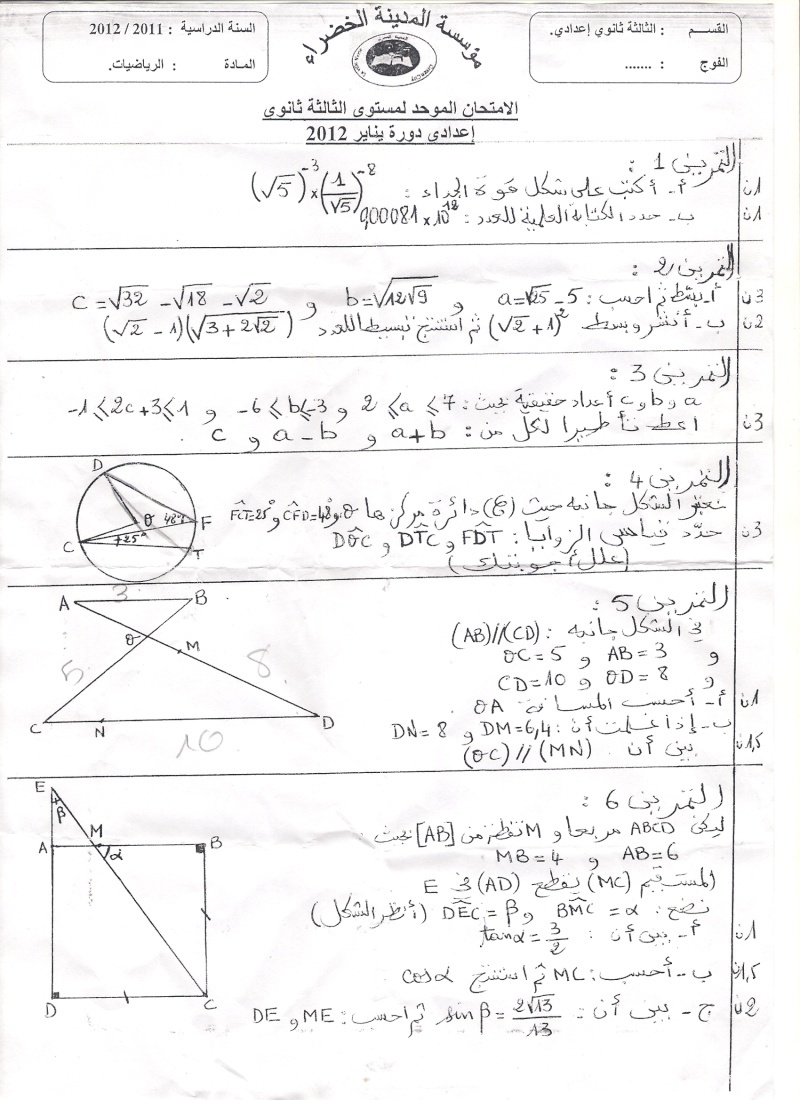 القسم : الثالثة ثانوي إعدادي.
الفوج : .......
مؤسسة المدينة الخضراء
السنة الدراسية : 2011 / 2012
المادة : الرياضيات.
الامتحان الموحد لمستوى الثالثة ثانوي
إعدادي دورة يناير 2012
التمرين 1 :
1ن أ- أكتب على شكل قوة الجداء : (√5)^-3 × (1/√5)^-8
1ن ب- حدد الكتابة العلمية للعدد : 0,00081 × 10^18
التمرين 2 :
3ن أ- بسط ثم احسب : a = √25 - 5 و b = √(12√9) و c = √32 - √18 - √2
2ن ب- أنشر وبسط (√2 + 1)² ثم استنتج تبسيطا للعدد (√2 - 1)(√(3 + 2√2))
التمرين 3 :
a و b و c أعداد حقيقية بحيث : 2 ⩽ a ⩽ 7 و -6 ⩽ b ⩽ -3 و -1 ⩽ 2c+3 ⩽ 1
3ن اعط تأطيرا لكل من : a+b و a-b و c .
التمرين 4 :
نعتبر الشكل جانبه حيث (C) دائرة مركزها O و CF̂D = 48° و FĈT = 25°
3ن حدد قياس الزوايا : FD̂T و DT̂C و DÔC
(علل أجوبتك)
D
O 48° F
C 25° T
التمرين 5 :
في الشكل جانبه : (AB)//(CD)
و AB = 3 و OC = 5
و OD = 8 و CD = 10
1ن أ- أحسب المسافة OA
ب- إذا علمت أن : DM = 6,4 و DN = 8
1,5ن بين أن (OC) // (MN)
A 3 B
O M
5 8
C N D
10
التمرين 6 :
ليكن ABCD مربعا و M نقطة من [AB] بحيث
AB = 6 و MB = 4
المستقيم (MC) يقطع (AD) في E
نضع : BM̂C = α و DÊC = β (أنظر الشكل)
1ن أ- بين أن : tanα = 3/2
1,5ن ب- أحسب : MC ثم استنتج cosα
2ن ج- بين أن : sinβ = 2√13/13 ثم احسب : ME و DE
E
β
A M B
α
D C